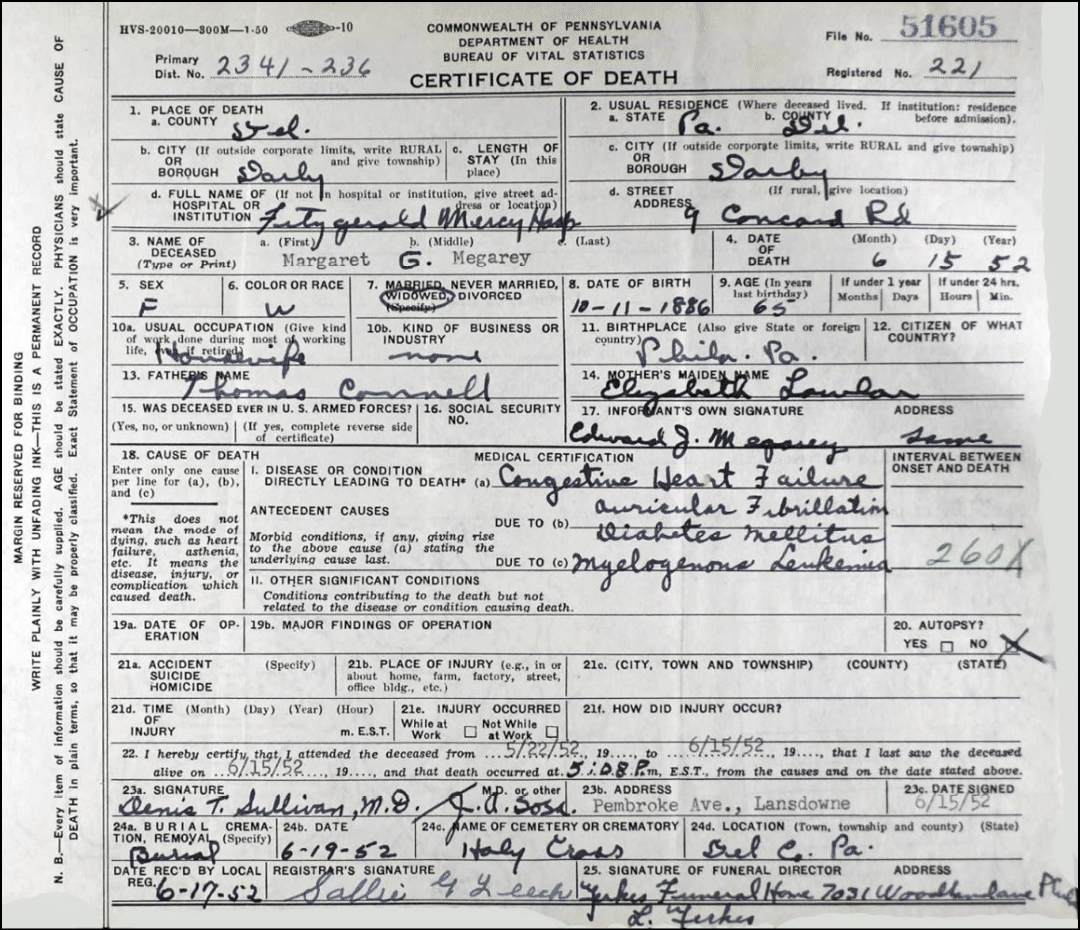 HVS-20010—300M—1-50 -10
COMMONWEALTH OF PENNSYLVANIA
DEPARTMENT OF HEALTH
BUREAU OF VITAL STATISTICS
CERTIFICATE OF DEATH
File No. 51605
Primary
Dist. No. 2341-236
Registered No. 221
MARGIN RESERVED FOR BINDING
WRITE PLAINLY WITH UNFADING INK—THIS IS A PERMANENT RECORD
N. B.—Every item of information should be carefully supplied. AGE should be stated EXACTLY. PHYSICIANS should state CAUSE OF
DEATH in plain terms, so that it may be properly classified. Exact Statement of OCCUPATION is very important.
1. PLACE OF DEATH
a. COUNTY Del.
b. CITY (If outside corporate limits, write RURAL
OR and give township)
BOROUGH Darby
c. LENGTH OF
STAY (In this
place)
d. FULL NAME OF (If not in hospital or institution, give street ad-
HOSPITAL OR dress or location)
INSTITUTION Fitzgerald Mercy Hosp
2. USUAL RESIDENCE (Where deceased lived. If institution: residence
before admission).
a. STATE Pa. b. COUNTY Del.
c. CITY (If outside corporate limits, write RURAL and give township)
OR
BOROUGH Darby
d. STREET (If rural, give location)
ADDRESS 9 Concord Rd
3. NAME OF
DECEASED
(Type or Print)
a. (First) b. (Middle) c. (Last)
Margaret G. Megarey
4. DATE
OF
DEATH
(Month) (Day) (Year)
6 15 52
5. SEX
F
6. COLOR OR RACE
W
7. MARRIED, NEVER MARRIED,
WIDOWED, DIVORCED
(Specify)
8. DATE OF BIRTH
10-11-1886
9. AGE (In years
last birthday)
65
If under 1 year
Months Days
If under 24 hrs.
Hours Min.
10a. USUAL OCCUPATION (Give kind
of work done during most of working
life, even if retired)
Housewife
10b. KIND OF BUSINESS OR
INDUSTRY
none
11. BIRTHPLACE (Also give State or foreign
country)
Phila. Pa.
12. CITIZEN OF WHAT
COUNTRY?
13. FATHER'S NAME
Thomas Connell
14. MOTHER'S MAIDEN NAME
Elizabeth Lawlor
15. WAS DECEASED EVER IN U. S. ARMED FORCES?
(Yes, no, or unknown) (If yes, complete reverse side
of certificate)
16. SOCIAL SECURITY
NO.
17. INFORMANT'S OWN SIGNATURE ADDRESS
Edward J. Megarey same
18. CAUSE OF DEATH
Enter only one cause
per line for (a), (b),
and (c)
*This does not
mean the mode of
dying, such as heart
failure, asthenia,
etc. It means the
disease, injury, or
complication which
caused death.
MEDICAL CERTIFICATION
I. DISEASE OR CONDITION
DIRECTLY LEADING TO DEATH* (a) Congestive Heart Failure
ANTECEDENT CAUSES
Auricular Fibrillation
DUE TO (b)
Diabetes Mellitus
Morbid conditions, if any, giving rise
to the above cause (a) stating the
underlying cause last.
DUE TO (c) Myelogenous Leukemia
INTERVAL BETWEEN
ONSET AND DEATH
260X
II. OTHER SIGNIFICANT CONDITIONS
Conditions contributing to the death but not
related to the disease or condition causing death.
19a. DATE OF OP-
ERATION
19b. MAJOR FINDINGS OF OPERATION
20. AUTOPSY?
YES NO X
21a. ACCIDENT (Specify)
SUICIDE
HOMICIDE
21b. PLACE OF INJURY (e.g., in or
about home, farm, factory, street,
office bldg., etc.)
21c. (CITY, TOWN AND TOWNSHIP) (COUNTY) (STATE)
21d. TIME (Month) (Day) (Year) (Hour)
OF
INJURY m. E.S.T.
21e. INJURY OCCURRED
While at Not While
Work at Work
21f. HOW DID INJURY OCCUR?
22. I hereby certify that I attended the deceased from 5/22/52, 19...., to 6/15/52, 19...., that I last saw the deceased
alive on 6/15/52, 19...., and that death occurred at 5:08 P.m, E.S.T., from the causes and on the date stated above.
23a. SIGNATURE M.D. or other
Denis T. Sullivan, M.D. / J. A. Sosa
23b. ADDRESS
Pembroke Ave., Lansdowne
23c. DATE SIGNED
6/15/52
24a. BURIAL CREMA-
TION, REMOVAL (Specify)
Burial
24b. DATE
6-19-52
24c. NAME OF CEMETERY OR CREMATORY
Holy Cross
24d. LOCATION (Town, township and county) (State)
Del Co. Pa.
DATE REC'D BY LOCAL
REG. 6-17-52
REGISTRAR'S SIGNATURE
Sallie G Leech
25. SIGNATURE OF FUNERAL DIRECTOR ADDRESS
Yerkes Funeral Home 7031 Woodland ave Phila
L. Yerkes